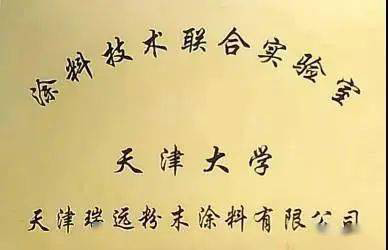 涂料技术联合实验室
天津大学
天津瑞远粉末涂料有限公司